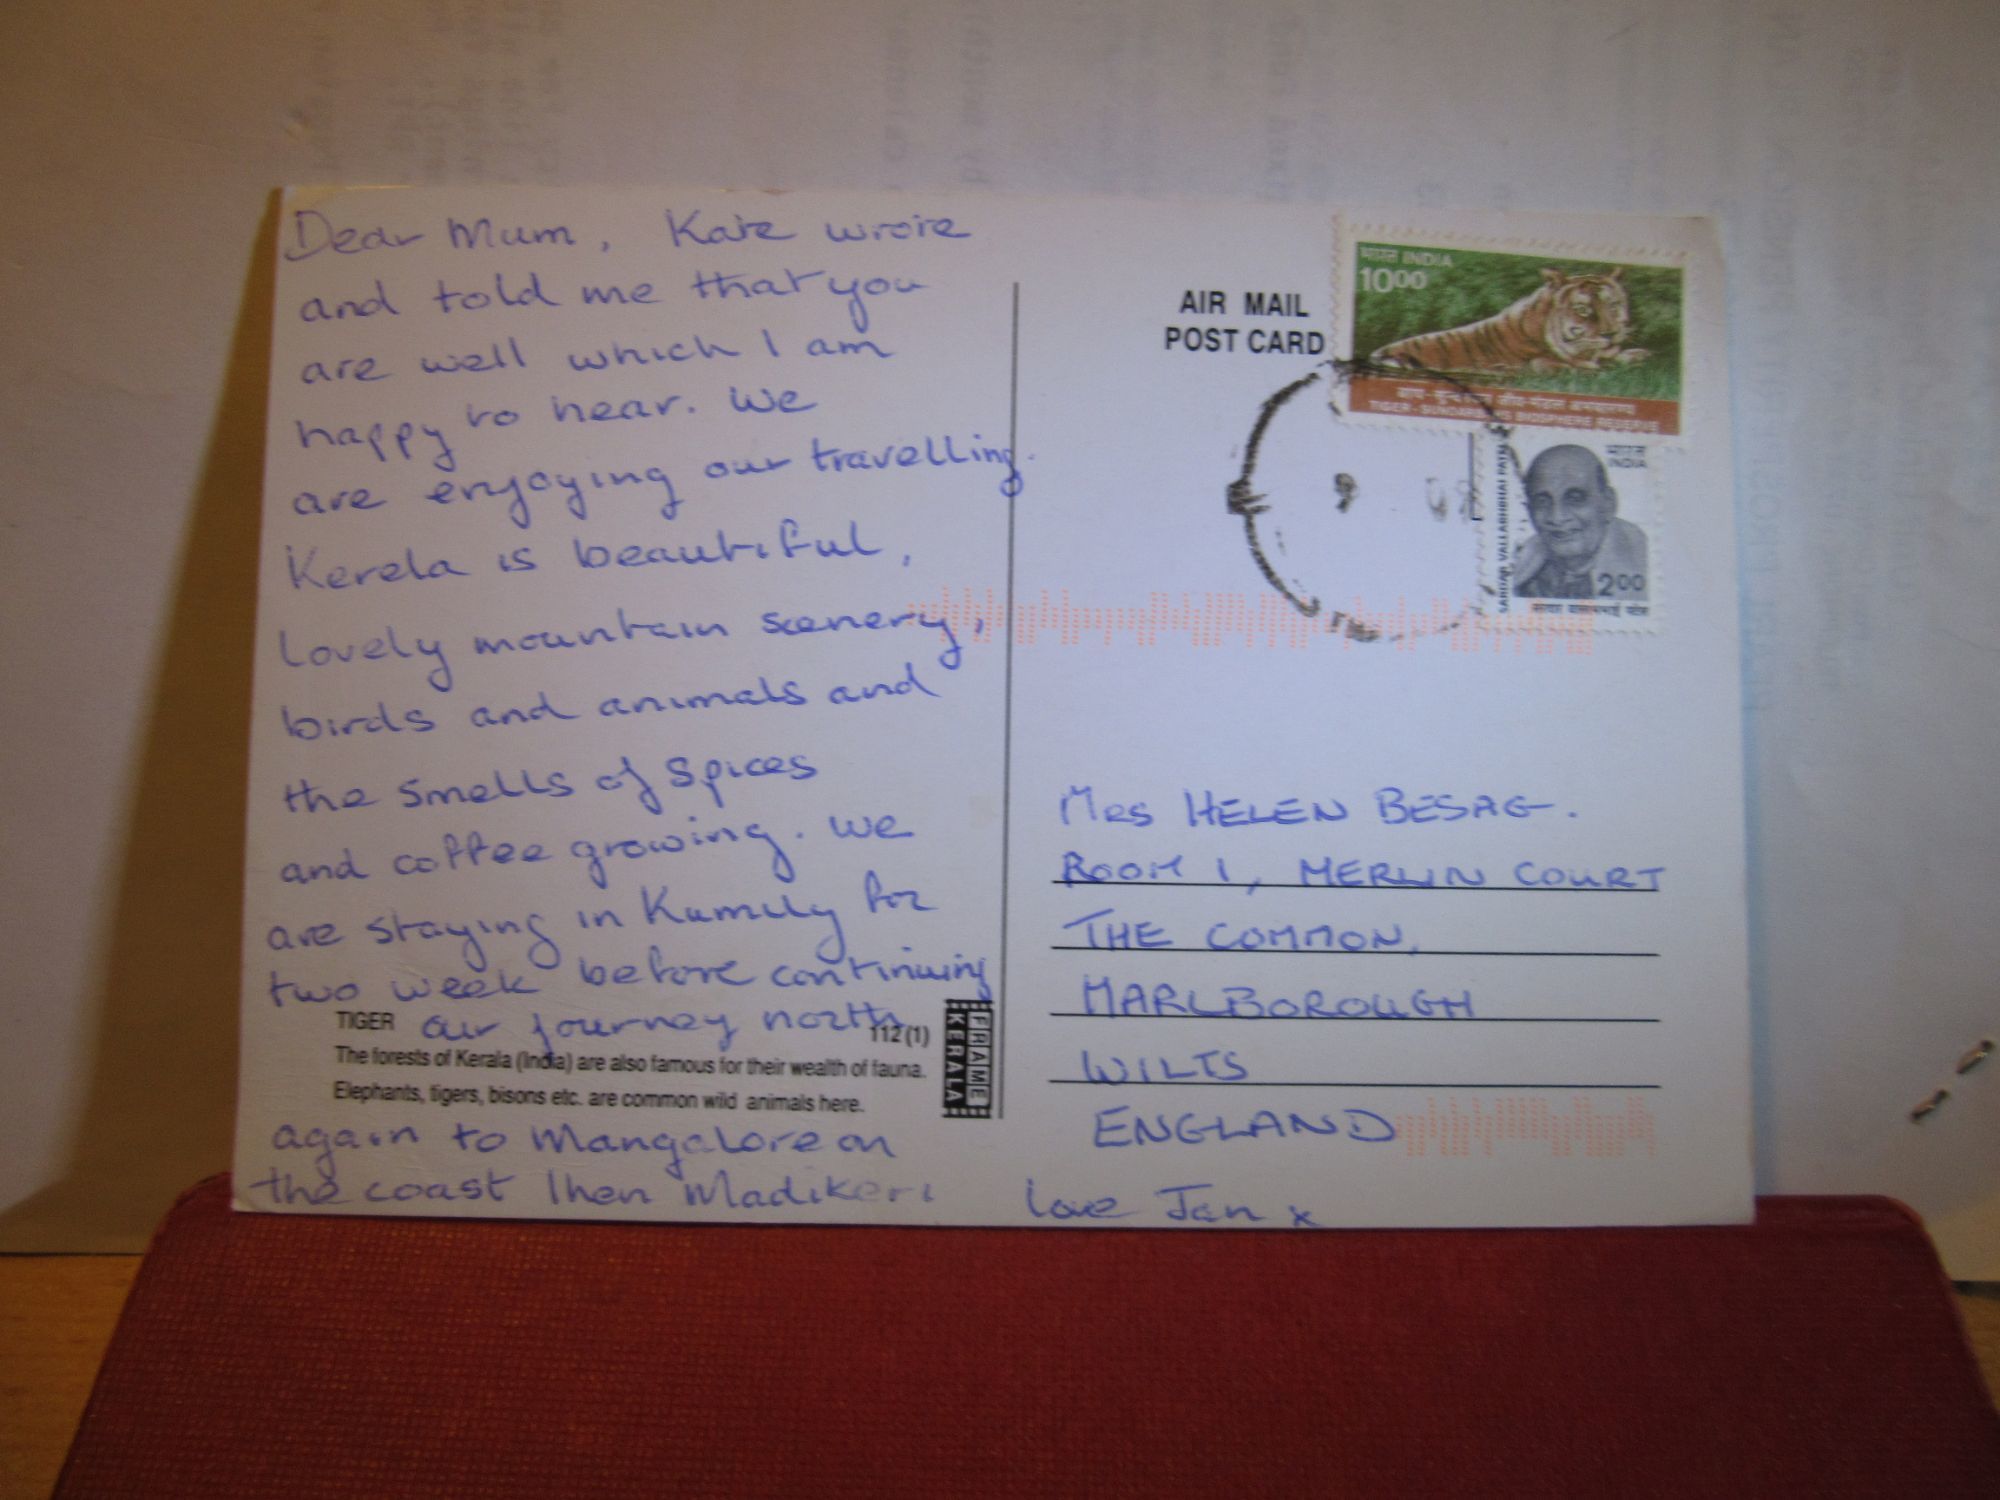 Dear Mum, Kate wrote
and told me that you
are well which I am
happy to hear. We
are enjoying our travelling.
Kerela is beautiful,
lovely mountain scenery,
birds and animals and
the smells of spices
and coffee growing. We
are staying in Kumily for
two week before continuing
our journey north
TIGER
112 (1)
The forests of Kerala (India) are also famous for their wealth of fauna.
Elephants, tigers, bisons etc. are common wild animals here.
FRAME
KERALA
again to Mangalore on
the coast then Madikeri
love Jan x
AIR MAIL
POST CARD
भारत INDIA
1000
TIGER - SUNDARBANS BIOSPHERE RESERVE
भारत
INDIA
SARDAR VALLABHBHAI PATEL
200
सरदार वल्लभभाई पटेल
Mrs HELEN BESAG.
ROOM 1, MERLIN COURT
THE COMMON,
MARLBOROUGH
WILTS
ENGLAND